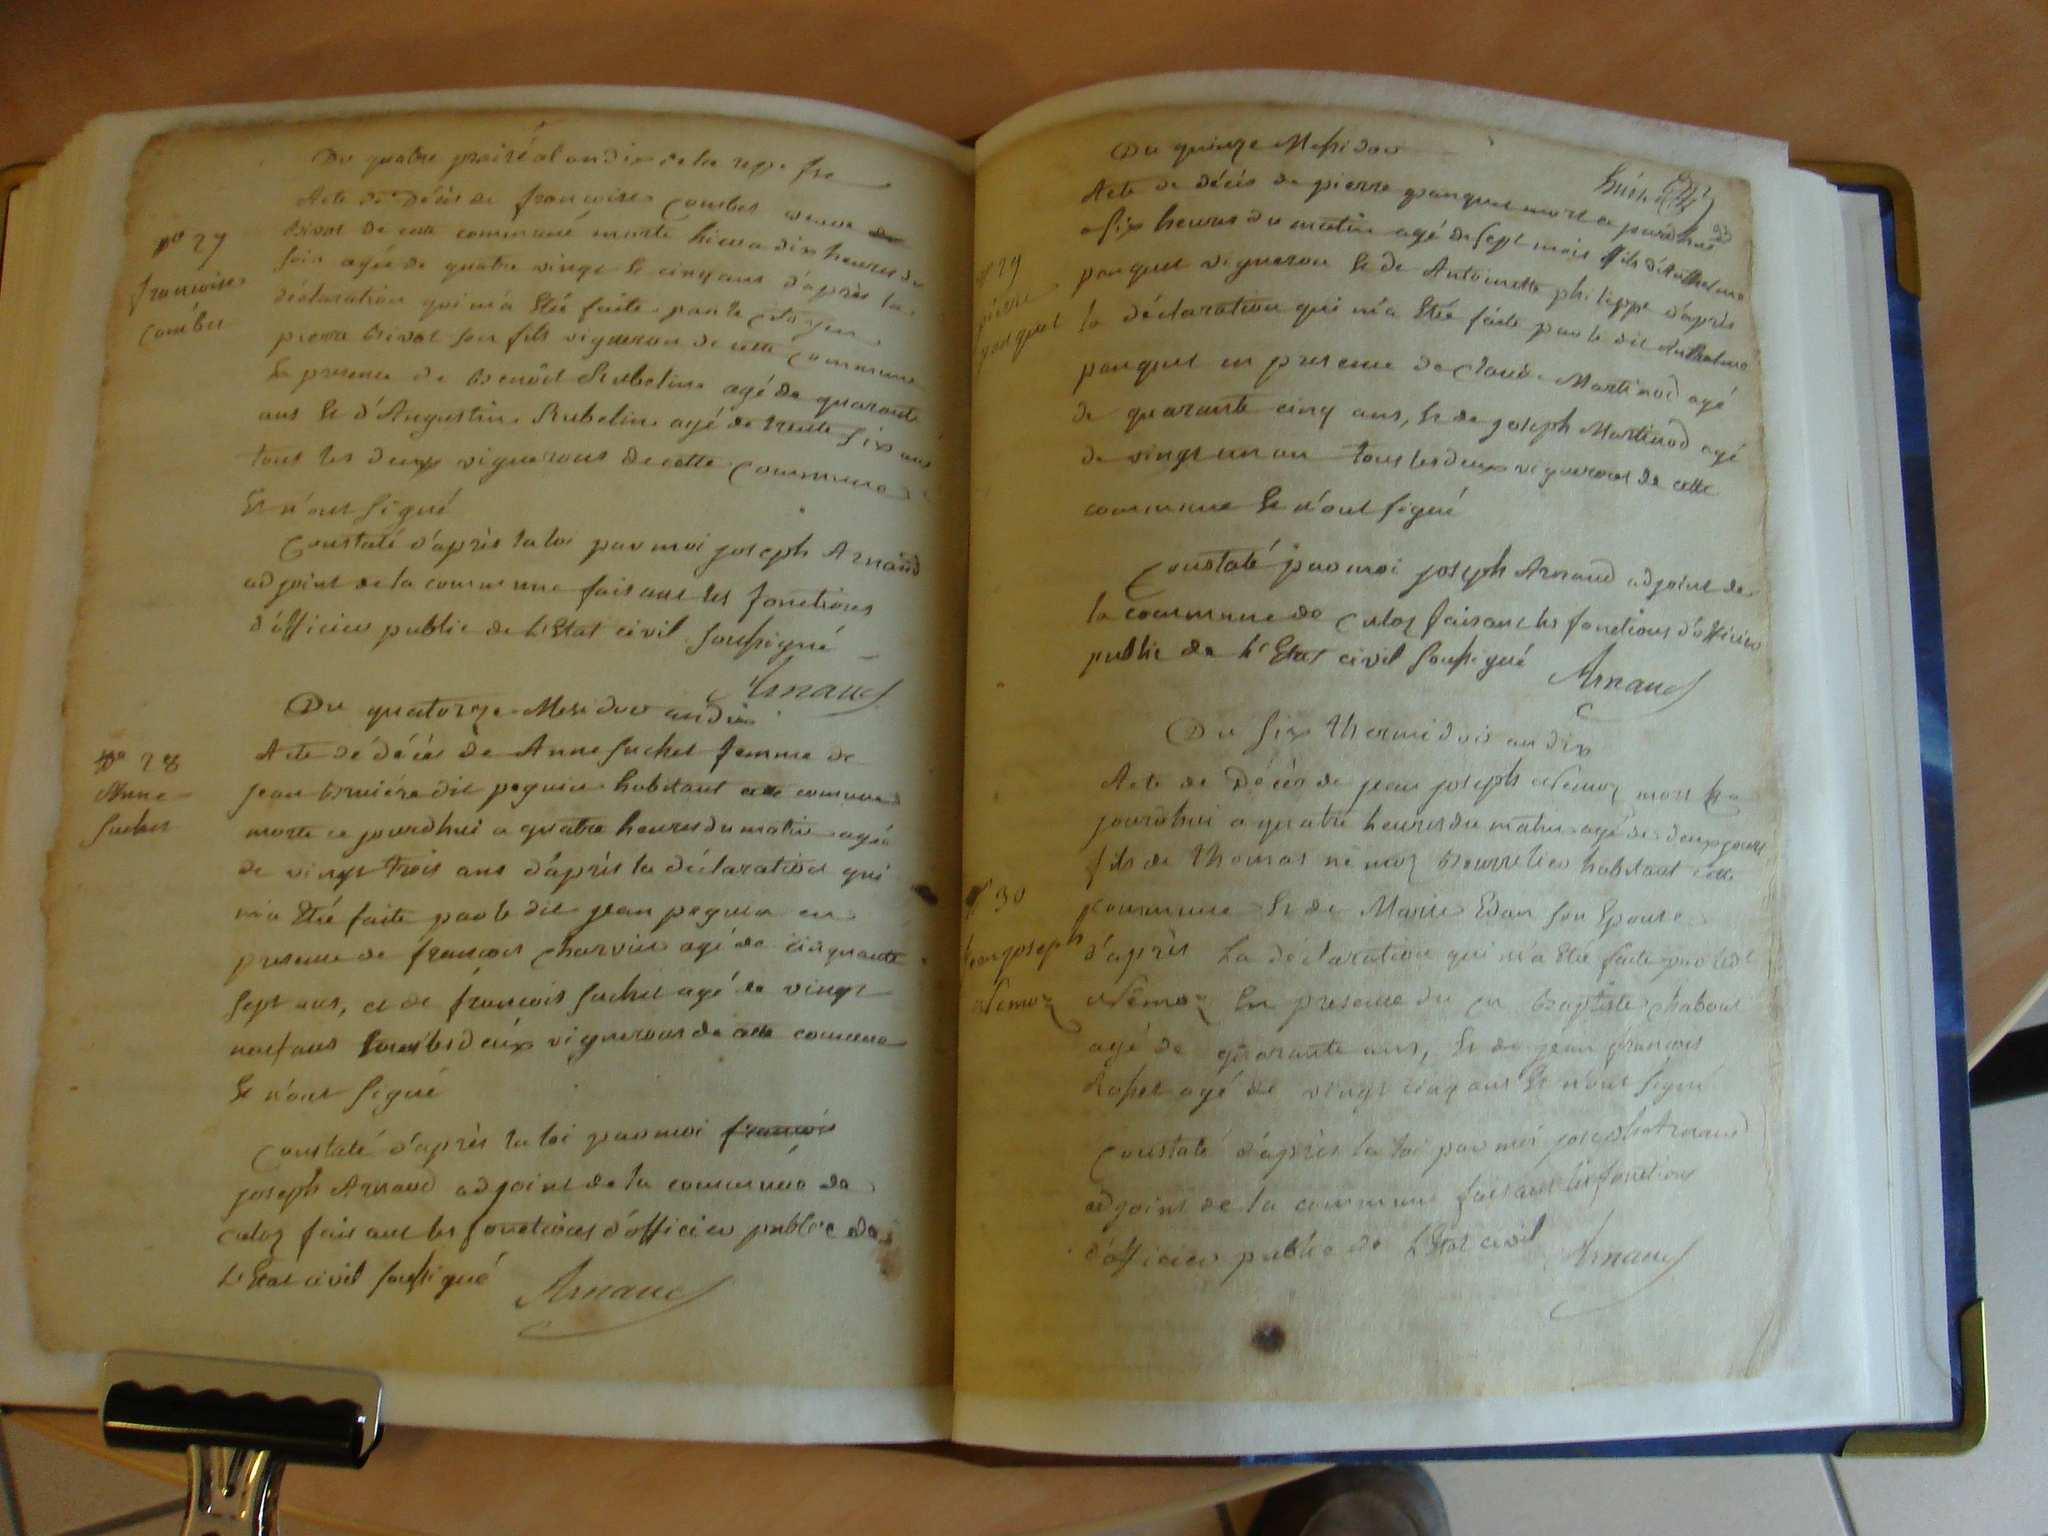 Du quatre prairéal an dix de la rep. fse
Acte de Décès de françoise Combet veuve de
bivot de cette commune morte hiere a dix heures du
soir agée de quatre vingt Et cinq ans d'après la
déclaration qui m'a Etée faite par le Citoyen
pierre bivot son fils vigneron de cette Commune
En presence de Benoit Rubelin agé de quarante
ans Et d'Augustin Rubelin agé de trente six ans
tous les deux vignerons de cette Commune
Et n'ont signé
Constaté d'après la loi par moi joseph Arnaud
adjoint de la commune faisant les fonctions
d'officier public de L'Etat civil soussigné
Arnaud
no 27
francoise
Combet
Du quatorze Mesidor an dix
Acte de décès de Anne suchet femme de
jean bruiére dit peguin habitant cette comune
morte ce jourdhui a quatre heures du matin agée
de vingt trois ans d'après la déclaration qui
m'a Etée faite par le dit jean peguin en
presence de françois charvin agé de cinquante
sept ans, et de françois suchet agé de vingt
neuf ans tous les deux vignerons de cette comune
Et n'ont signé
Constaté d'après la loi par moi françois
joseph Arnaud adjoint de la commune de
Culoz faisant les fonctions d'officier public de
L'Etat civil soussigné Arnaud
no 28
Anne
suchet
Du quinze Messidor
Acte de décès de pierre panquet mort ce jourdhui
a six heures du matin agé de sept mois fils d'Anthelme
panquet vigneron Et de Antoinette philippe d'après
la déclaration qui m'a Etée faite par le dit Anthelme
panquet en presence de Claude Martinod agé
de quarante cinq ans, Et de joseph Martinod agé
de vingt un an tous les deux vignerons de cette
commune Et n'ont signé
Constaté par moi joseph Arnaud adjoint de
la commune de Culoz faisant les fonctions d'officier
public de L'Etat civil soussigné Arnaud
no 29
pierre
panquet
Du six thermidor an dix
Acte de Décès de jean joseph Nemoz mort ce
jourdhui a quatre heures du matin agé de deux jours
fils de thomas némoz bourrelier habitant cette
commune Et de Marie Edan son Epouse
d'après La déclaration qui m'a Etée faite par ledt
Némoz En presence du Cn Baptiste chabout
agé de quarante ans, Et de jean françois
agé de vingt cinq ans Et n'ont signé
Constaté d'après la loi par moi joseph Arnaud
adjoint de la commune faisant les fonctions
d'officier public de L'Etat civil Arnaud
no 30
jean joseph
Nemoz